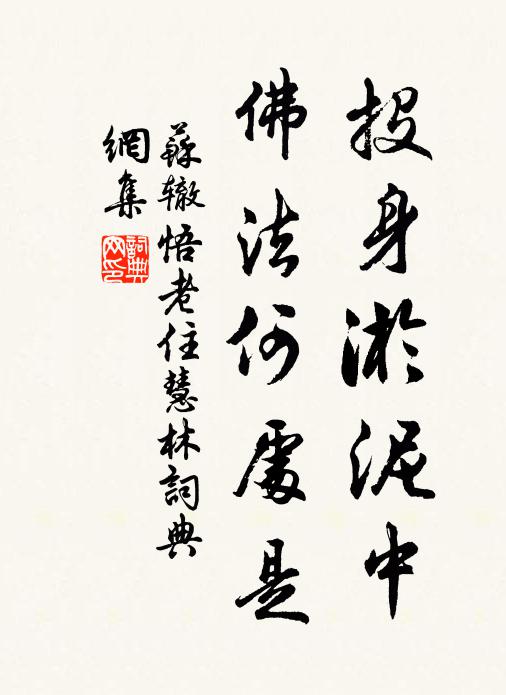 投身淤泥中
佛法何處是
蘇辙悟老住慧林詞典
網集
詞典网印